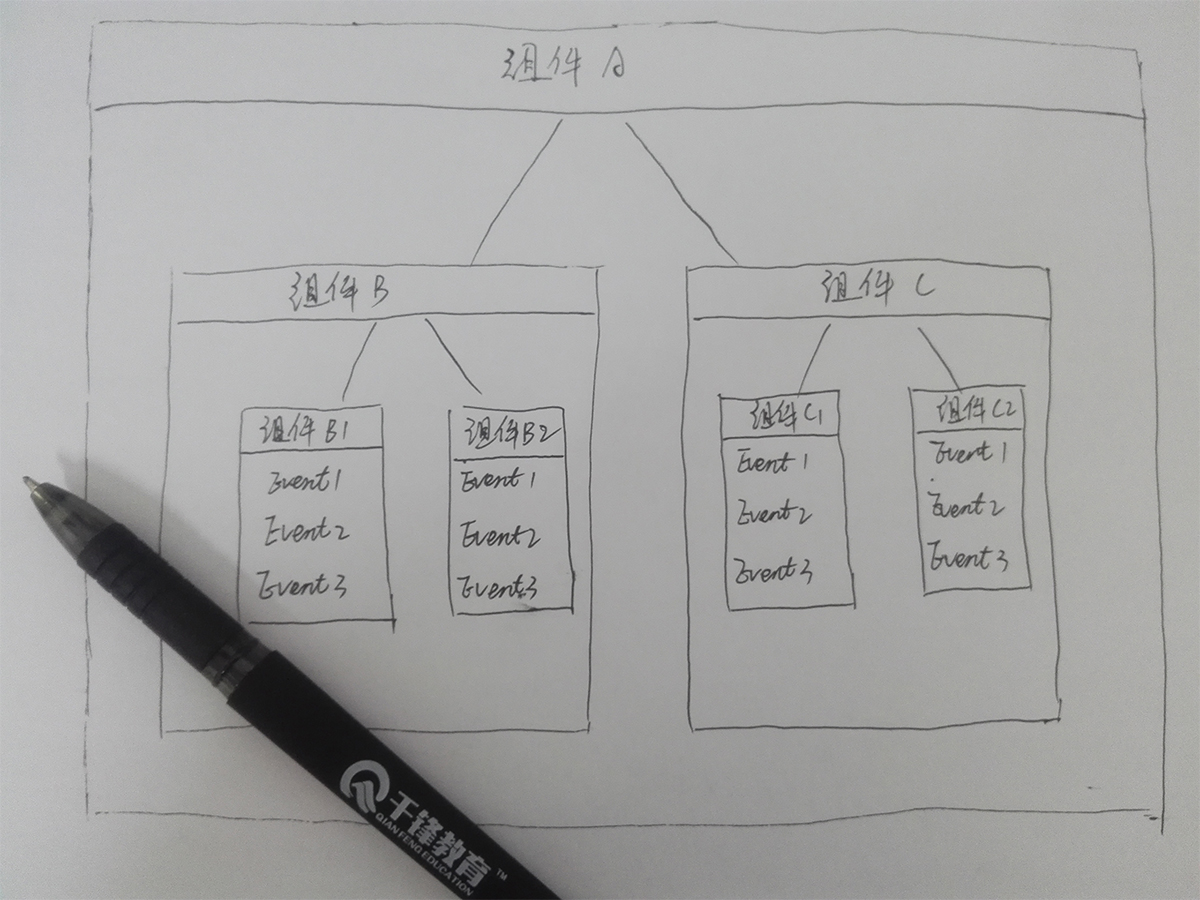 组件 A
组件 B
组件 C
组件 B1
Event1
Event2
Event3
组件B2
Event1
Event2
Event3
组件C1
Event1
Event2
Event3
组件C2
Event1
Event2
Event3
千锋教育™
QIAN FENG EDUCATION